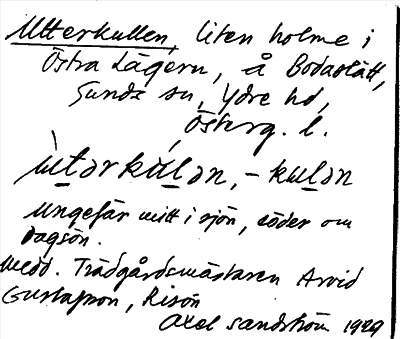 Utterkullen, liten holme i
Östra Lägern, å Bodaslätt,
Sunds sn, Ydre hd,
Österg. l.
ùtərkúlən, -kulən
Ungefär mitt i sjön, söder om
Dagsön.
Medd. Trädgårdsmästaren Arvid
Gustafsson, Risön
Axel Sandström 1929